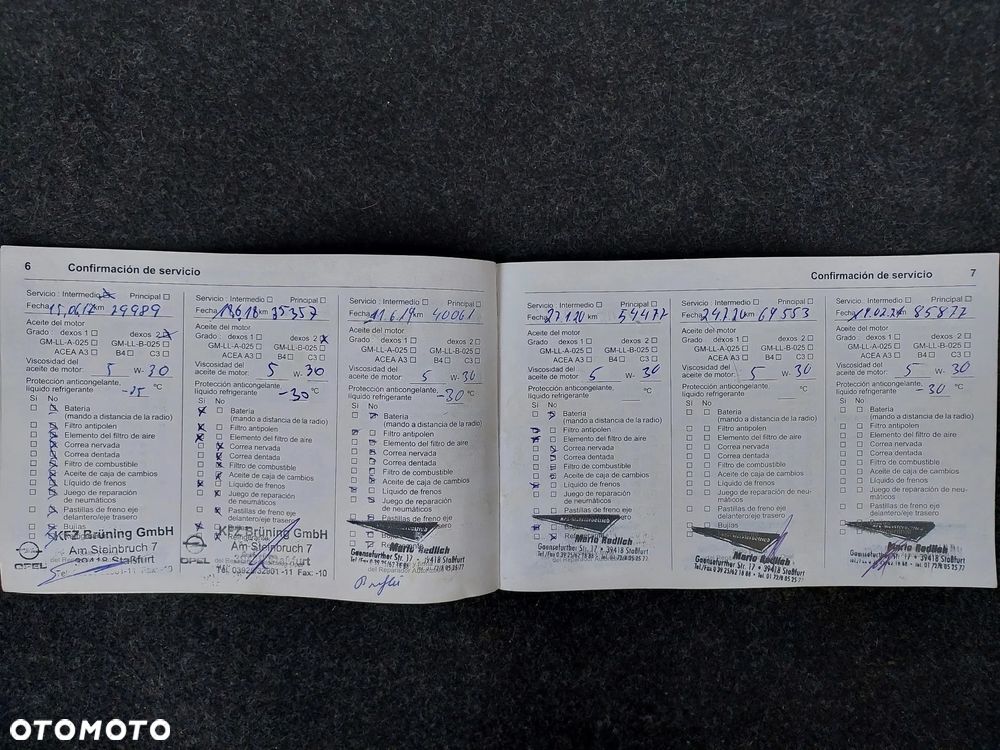 6 Confirmación de servicio
Servicio : Intermedio Principal
Fecha 15,06,17 km 29989
Aceite del motor
Grado : dexos 1 dexos 2
GM-LL-A-025 GM-LL-B-025
ACEA A3 B4 C3
Viscosidad del
aceite de motor: 5 W- 30
Protección anticongelante, -25 °C
líquido refrigerante
Si No
Batería
(mando a distancia de la radio)
Filtro antipolen
Elemento del filtro de aire
Correa nervada
Correa dentada
Filtro de combustible
Aceite de caja de cambios
Líquido de frenos
Juego de reparación
de neumáticos
Pastillas de freno eje
delantero/eje trasero
Bujías
KFZ Brüning GmbH
Am Steinbruch 7
39418 Staßfurt
OPEL
Servicio : Intermedio Principal
Fecha 19.6.18 km 35357
Aceite del motor
Grado : dexos 1 dexos 2
GM-LL-A-025 GM-LL-B-025
ACEA A3 B4 C3
Viscosidad del
aceite de motor: 5 W- 30
Protección anticongelante, -30 °C
líquido refrigerante
Si No
Batería
(mando a distancia de la radio)
Filtro antipolen
Elemento del filtro de aire
Correa nervada
Correa dentada
Filtro de combustible
Aceite de caja de cambios
Líquido de frenos
Juego de reparación
de neumáticos
Pastillas de freno eje
delantero/eje trasero
KFZ Brüning GmbH
Am Steinbruch 7
Staßfurt
OPEL
-11 Fax: -10
Servicio : Intermedio Principal
Fecha 11.6.19 km 40061
Aceite del motor
Grado : dexos 1 dexos 2
GM-LL-A-025 GM-LL-B-025
ACEA A3 B4 C3
Viscosidad del
aceite de motor: 5 W- 30
Protección anticongelante, -30 °C
líquido refrigerante
Si No
Batería
(mando a distancia de la radio)
Filtro antipolen
Elemento del filtro de aire
Correa nervada
Correa dentada
Filtro de combustible
Aceite de caja de cambios
Líquido de frenos
Juego de reparación
de neumáticos
Pastillas de freno eje
Mario Redlich
Gaensefurther Str. 17 • 39418 Staßfurt
Confirmación de servicio 7
Servicio : Intermedio Principal
Fecha 22.1.20 km 54477
Aceite del motor
Grado : dexos 1 dexos 2
GM-LL-A-025 GM-LL-B-025
ACEA A3 B4 C3
Viscosidad del
aceite de motor: 5 W- 30
Protección anticongelante, °C
líquido refrigerante
Si No
Batería
(mando a distancia de la radio)
Filtro antipolen
Elemento del filtro de aire
Correa nervada
Correa dentada
Filtro de combustible
Aceite de caja de cambios
Líquido de frenos
Juego de reparación
de neumáticos
Pastillas de freno eje
Mario Redlich
Gaensefurther Str. 17 • 39418 Staßfurt
Servicio : Intermedio Principal
Fecha 24.7.20 km 69553
Aceite del motor
Grado : dexos 1 dexos 2
GM-LL-A-025 GM-LL-B-025
ACEA A3 B4 C3
Viscosidad del
aceite de motor: 5 W- 30
Protección anticongelante, °C
líquido refrigerante
Si No
Batería
(mando a distancia de la radio)
Filtro antipolen
Elemento del filtro de aire
Correa nervada
Correa dentada
Filtro de combustible
Aceite de caja de cambios
Líquido de frenos
Juego de reparación
de neumáticos
Pastillas de freno eje
delantero/eje trasero
Bujías
Mario Redlich
Gaensefurther Str. 17 • 39418 Staßfurt
Servicio : Intermedio Principal
Fecha km 85877
Aceite del motor
Grado : dexos 1 dexos 2
GM-LL-A-025 GM-LL-B-025
ACEA A3 B4 C3
Viscosidad del
aceite de motor: 5 W- 30
Protección anticongelante, -30 °C
líquido refrigerante
Si No
Batería
(mando a distancia de la radio)
Filtro antipolen
Elemento del filtro de aire
Correa nervada
Correa dentada
Filtro de combustible
Aceite de caja de cambios
Líquido de frenos
Juego de reparación de neu-
máticos
Pastillas de freno eje
delantero/eje trasero
Bujías
Mario Redlich
Gaensefurther Str. 17 • 39418 Staßfurt
OTOMOTO